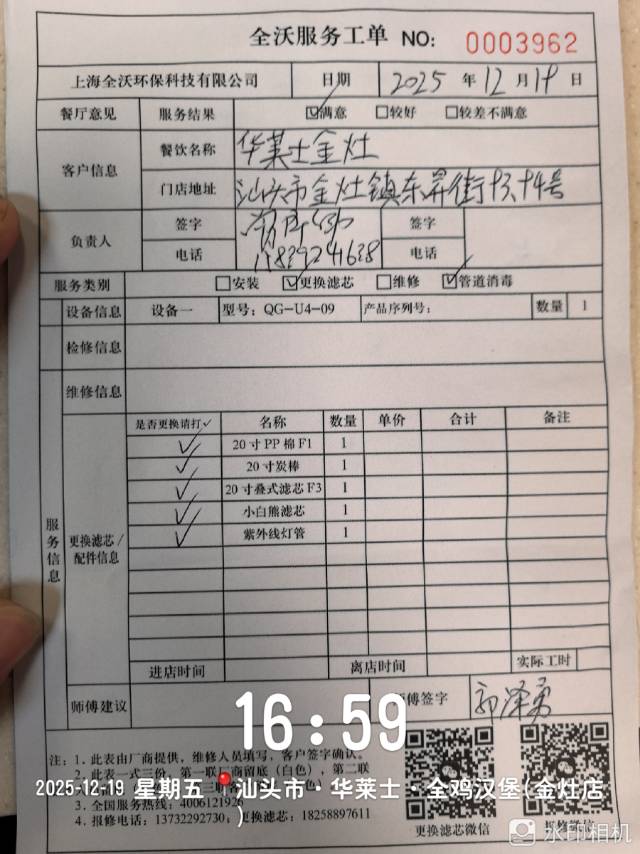 全沃服务工单 NO: 0003962
上海全沃环保科技有限公司 日期 2025年12月19日
餐厅意见 服务结果 ☑满意 □较好 □较差不满意
客户信息 餐饮名称 华莱士金灶
门店地址 汕头市金灶镇东昇街13、14号
负责人 签字 签字
电话 电话
服务类别 □安装 ☑更换滤芯 □维修 ☑管道消毒
设备信息 设备一 型号: QG-U4-09 产品序列号: 数量 1
检修信息
维修信息
服务信息
更换滤芯/配件信息
是否更换请打✓ 名称 数量 单价 合计 备注
✓ 20寸PP棉F1 1
✓ 20寸炭棒 1
✓ 20寸叠式滤芯F3 1
✓ 小白熊滤芯 1
✓ 紫外线灯管 1
进店时间 离店时间 实际工时
师傅建议 师傅签字 郭泽勇
16:59
注: 1. 此表由厂商提供, 维修人员填写, 客户签字确认。
2. 此表一式三份, 第一联厂商留底(白色), 第二联
2025-12-19 星期五 汕头市·华莱士·全鸡汉堡(金灶店)
3. 全国服务热线: 4006121926
4. 报修电话: 13732292730、18258897611
更换滤芯微信 报修微信
水印相机